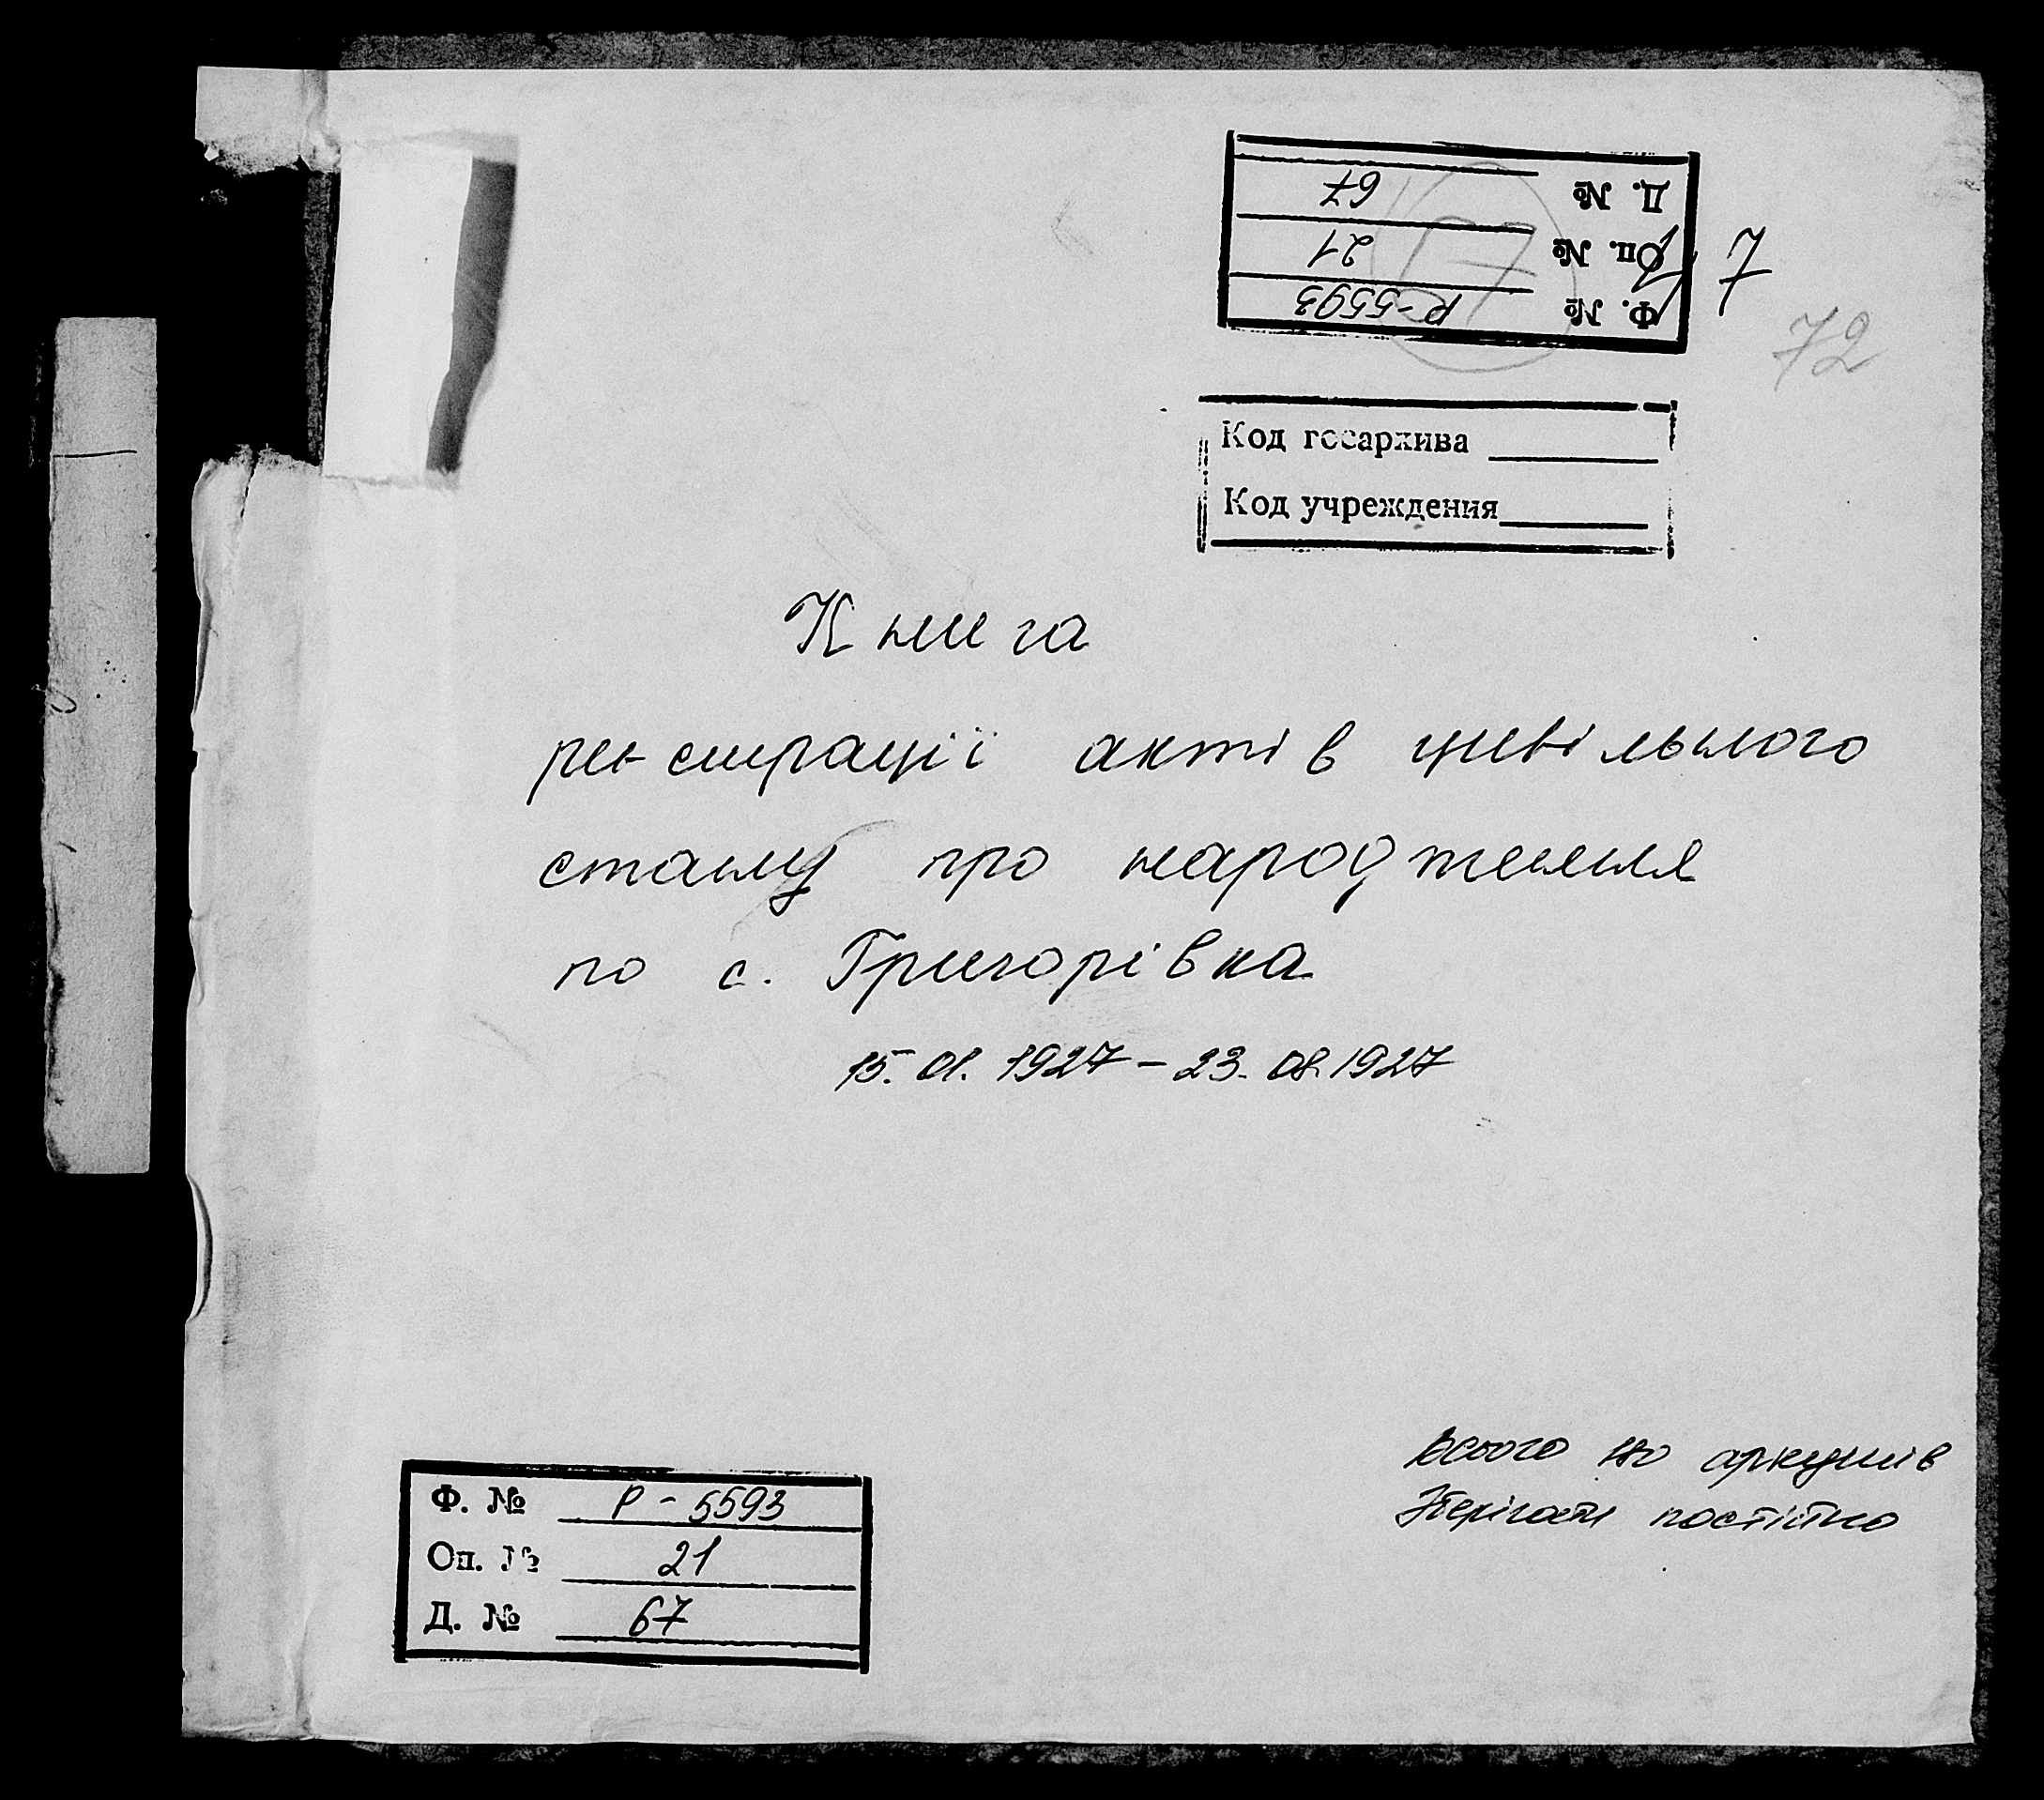 Д. № 67
Оп. № 21
Ф. № Р-5593
7
72
Код госархива
Код учреждения
Книга
реєстрації актів цивільного
стану про народження
по с. Григорівка
15.01.1927 – 23.08.1927
Всього 110 аркушів
Зберігати постійно
Ф. № Р-5593
Оп. № 21
Д. № 67